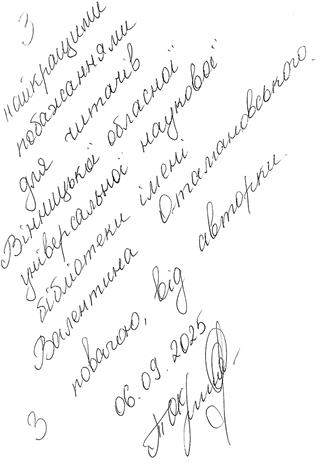 З
найкращими
побажаннями
для читачів
Вінницької обласної
універсальної наукової
бібліотеки імені
Валентина Отамановського.
З повагою, від авторки.
06.09.2025